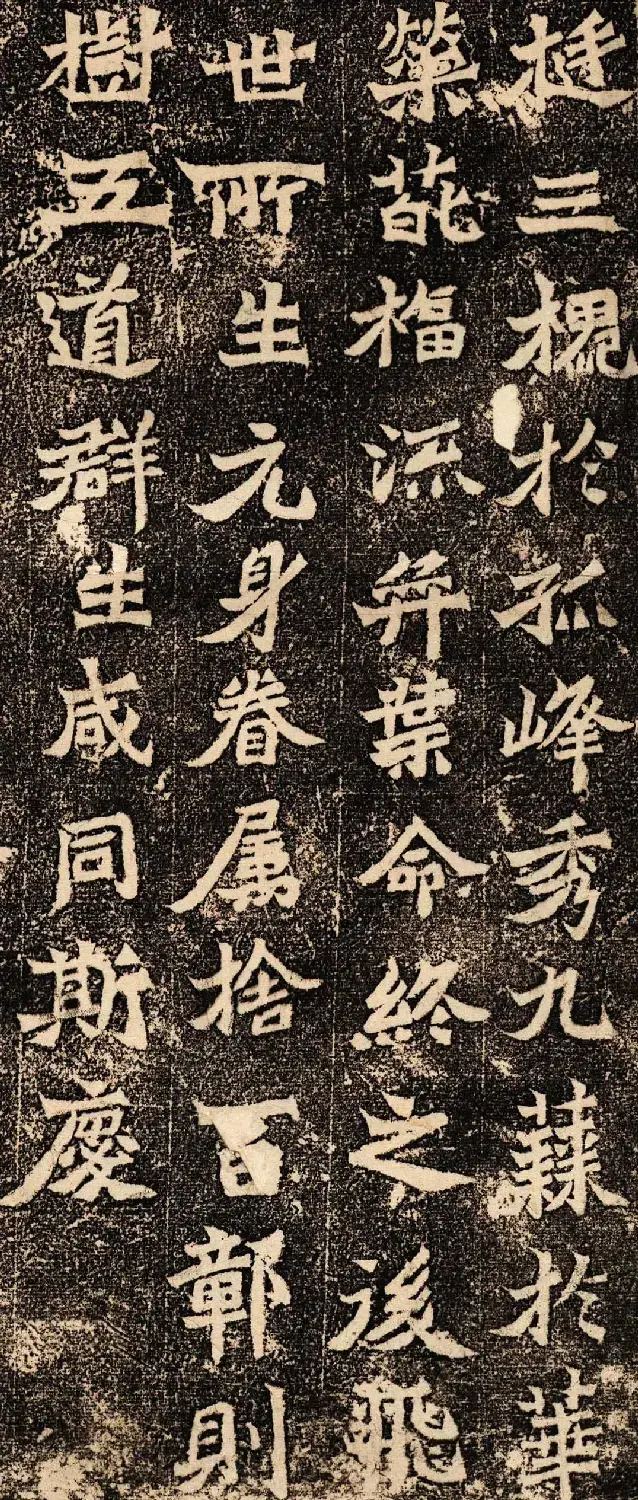 挺三槐於孤峰秀九蕀於華
榮葩福流弈葉命終之後飛
世所生元身眷属捨百鄣則
樹五道群生咸同斯慶